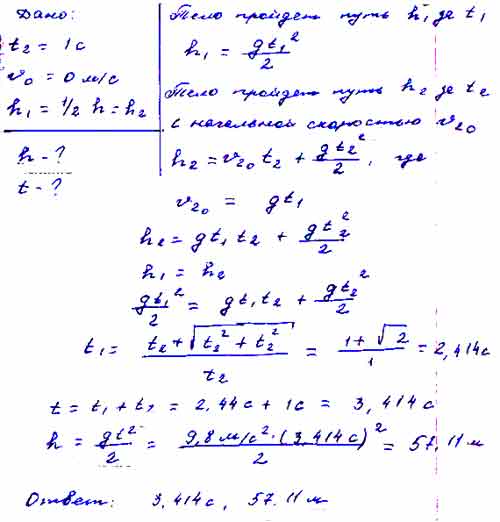 Дано:
t₂ = 1с
v₀ = 0 м/с
h₁ = 1/2 h = h₂
h - ?
t - ?
Тело пройдет путь h₁ за t₁
h₁ = gt₁²/2
Тело пройдет путь h₂ за t₂
с начальной скоростью v₂₀
h₂ = v₂₀ t₂ + gt₂²/2, где
v₂₀ = gt₁
h₂ = gt₁ t₂ + gt₂²/2
h₁ = h₂
gt₁²/2 = gt₁t₂ + gt₂²/2
t₁ = (t₂ + √(t₂² + t₂²))/t₂ = (1 + √2)/1 = 2,414с
t = t₁ + t₂ = 2,44с + 1с = 3,414с
h = gt²/2 = 9,8м/с²·(3,414с)²/2 = 57.11м
Ответ: 3,414с, 57.11м